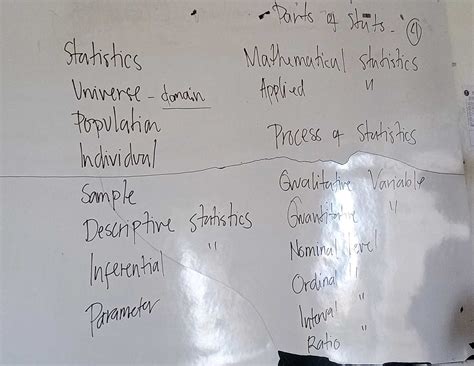 Statistics
Universe - domain
Population
Individual
Sample
Descriptive statistics
Inferential "
Parameter
Parts of Stats. (4)
Mathematical statistics
Applied "
Process of Statistics
Qualitative Variable
Quantitative "
Nominal level
Ordinal "
Interval "
Ratio "